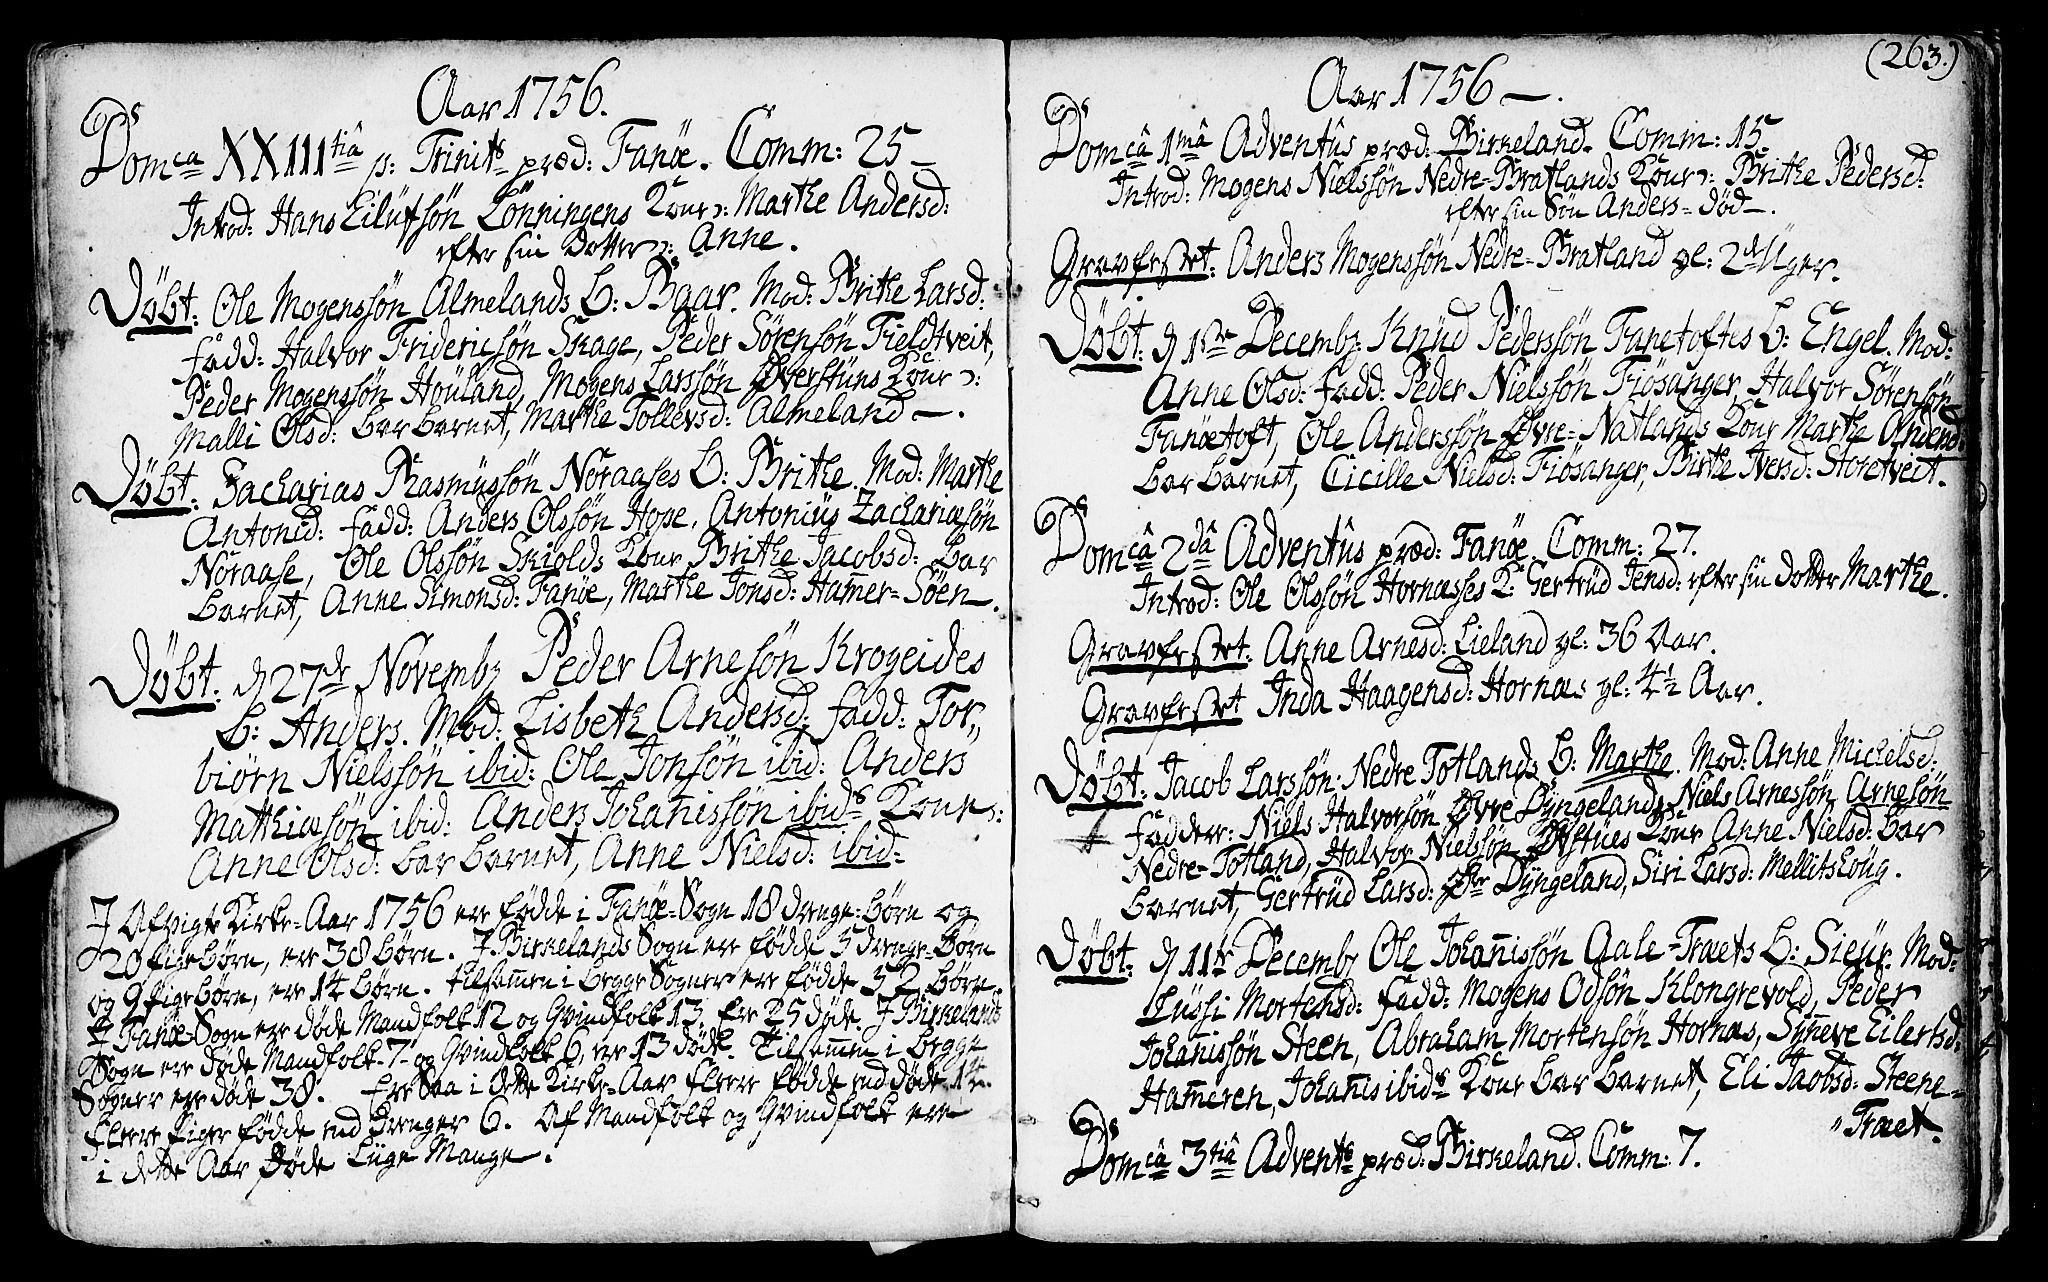 Aar 1756.
Domca XXIIItia p: Trinits præd: Fanöe. Comm: 25 –
Introd: Hans Eilufsön Lönningens Kone: Marthe Andersd:
efter sin Dotter: Anne.
Döbt: Ole Mogenssön Almelands b: Baar. Mod: Brithe Larsd:
fadd: Halvor Fridericsön Skage, Peder Sörensön Fieldtveit,
Peder Mogenssön Houland, Mogens Larssön Øverstuns Kone:
Malli Olsd: bar barnet, Marthe Tollevsd: Almeland –.
Döbt: Zacharias Rasmussön Noraases b: Brithe. Mod: Marthe
Antonid: fadd: Anders Olssön Hope, Antonius Zachariæsön
Noraase, Ole Olssön Skiolds Kone Brithe Jacobsd: bar
barnet, Anne Simonsd: Fanöe, Marthe Jonsd: Hamer-Söen.
Döbt: d 27de Novembr Peder Arnesön Krogeides
b: Anders. Mod: Lisbeth Andersd: fadd: Tor„
biörn Nielssön ibid: Ole Jonsön ibid: Anders
Matthiæsön ibid: Anders Johanissön ibids Kone:
Anne Olsd: bar barnet, Anne Nielsd: ibid–
J Afvigte Kirke-Aar 1756 ere födde i Fanöe-Sogn 18 drenge-börn og
20 pigebörn, er 38 börn. J Birkelands Sogn ere födde 5 drenge-börn
og 9 pigebörn, er 14 börn. tilsamen i begge Sogner ere födde 52 börn.
J Fanöe-Sogn ere döde Mandfolk 12 og Qvindfolk 13 Er 25 döde. J Birkelands
Sogn ere döde Mandfolk-7- og Qvindfolk 6, er 13 döde. Tilsamen i begge
Sogner ere döde 38. Ere Saa i dette Kirke-Aar fleere födde end döde 14.
fleere Piger födde end Drenger 6. Af Mandfolk og Qvindfolk ere
i dette Aar Döde Lüge Mange.
(263.)
Aar 1756 –.
Domca 1ma Adventûs præd: Birkeland. Comm: 15.
Introd: Mogens Nielssön Nedre-Bratlands Kone: Brithe Pedersd:
efter sin Sön Anders-död–.
Gravfestet: Anders Mogenssön Nedre-Bratland gl: 2de Uger.
Döbt: d 1ste Decembr: Knud Pederssön Fanetoftes b: Engel. Mod:
Anne Olsd: fadd: Peder Nielssön Fiösanger, Halvor Sörensön
Fanöetoft, Ole Anderssön Øvre-Natlands Kone Marthe Andersd:
bar barnet, Cicille Nielsd: Fiösanger, Birthe Iversd: Storetveit.
Domca 2da Adventûs præd: Fanöe. Comm: 27.
Introd: Ole Olssön Hornæsses K: Gertrüd Jensd: efter sin dotter Marthe.
Gravfestet: Anne Arnesd: Lieland gl: 36 Aar.
Gravfestet Inda Haagensd: Hornæs gl: 4½ Aar.
Döbt: Jacob Larssön Nedre Totlands b: Marthe. Mod: Anne Michelsd:
fadder: Niels Halvorsön Øvre Dyngelands, Niels Arnessön Arnesön
Nedre-Totland, Halvor Nielsön Øfstues Kone Anne Nielsd: bar
barnet, Gertrüd Larsd: Øvre Dyngeland, Siri Larsd: Mellitshoug.
Döbt: d 11te Decembr Ole Johanissön Aale-Træets b: Sieur. Mod:
Lüssi Mortensd: fadd: Mogens Odsön Klongrevold, Peder
Johanissön Steen, Abraham Mortensön Hornæs, Syneve Eilertsd:
Hameren, Johanis ibids Kone bar barnet, Eli Jacobsd: Steene-
„Træet.
Domca 3tia Advents præd: Birkeland. Comm: 7.